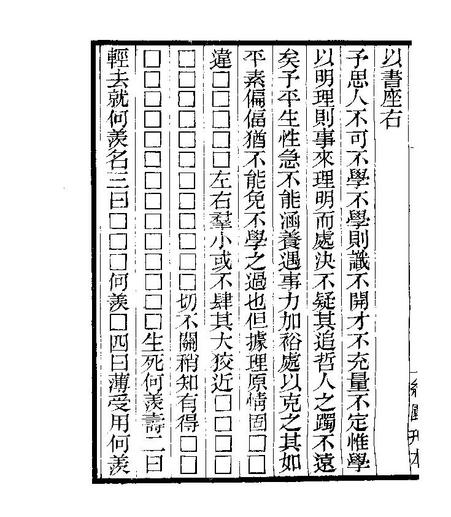 以書座右
予思人不可不學不學則識不開才不充量不定惟學
以明理則事來理明而處決不疑其追哲人之躅不遠
矣予平生性急不能涵養遇事力加裕處以克之其如
平素偏偪猶不能免不學之過也但據理原情固□□
違□□□□□左右羣小或不肆其大狡近□□□□
□□□□□□□□□□□□切不關稍知有得□□
□□□□□□□□□□□□□□生死何羨壽二曰
輕去就何羨名三曰□□□何羨□四曰薄受用何羨